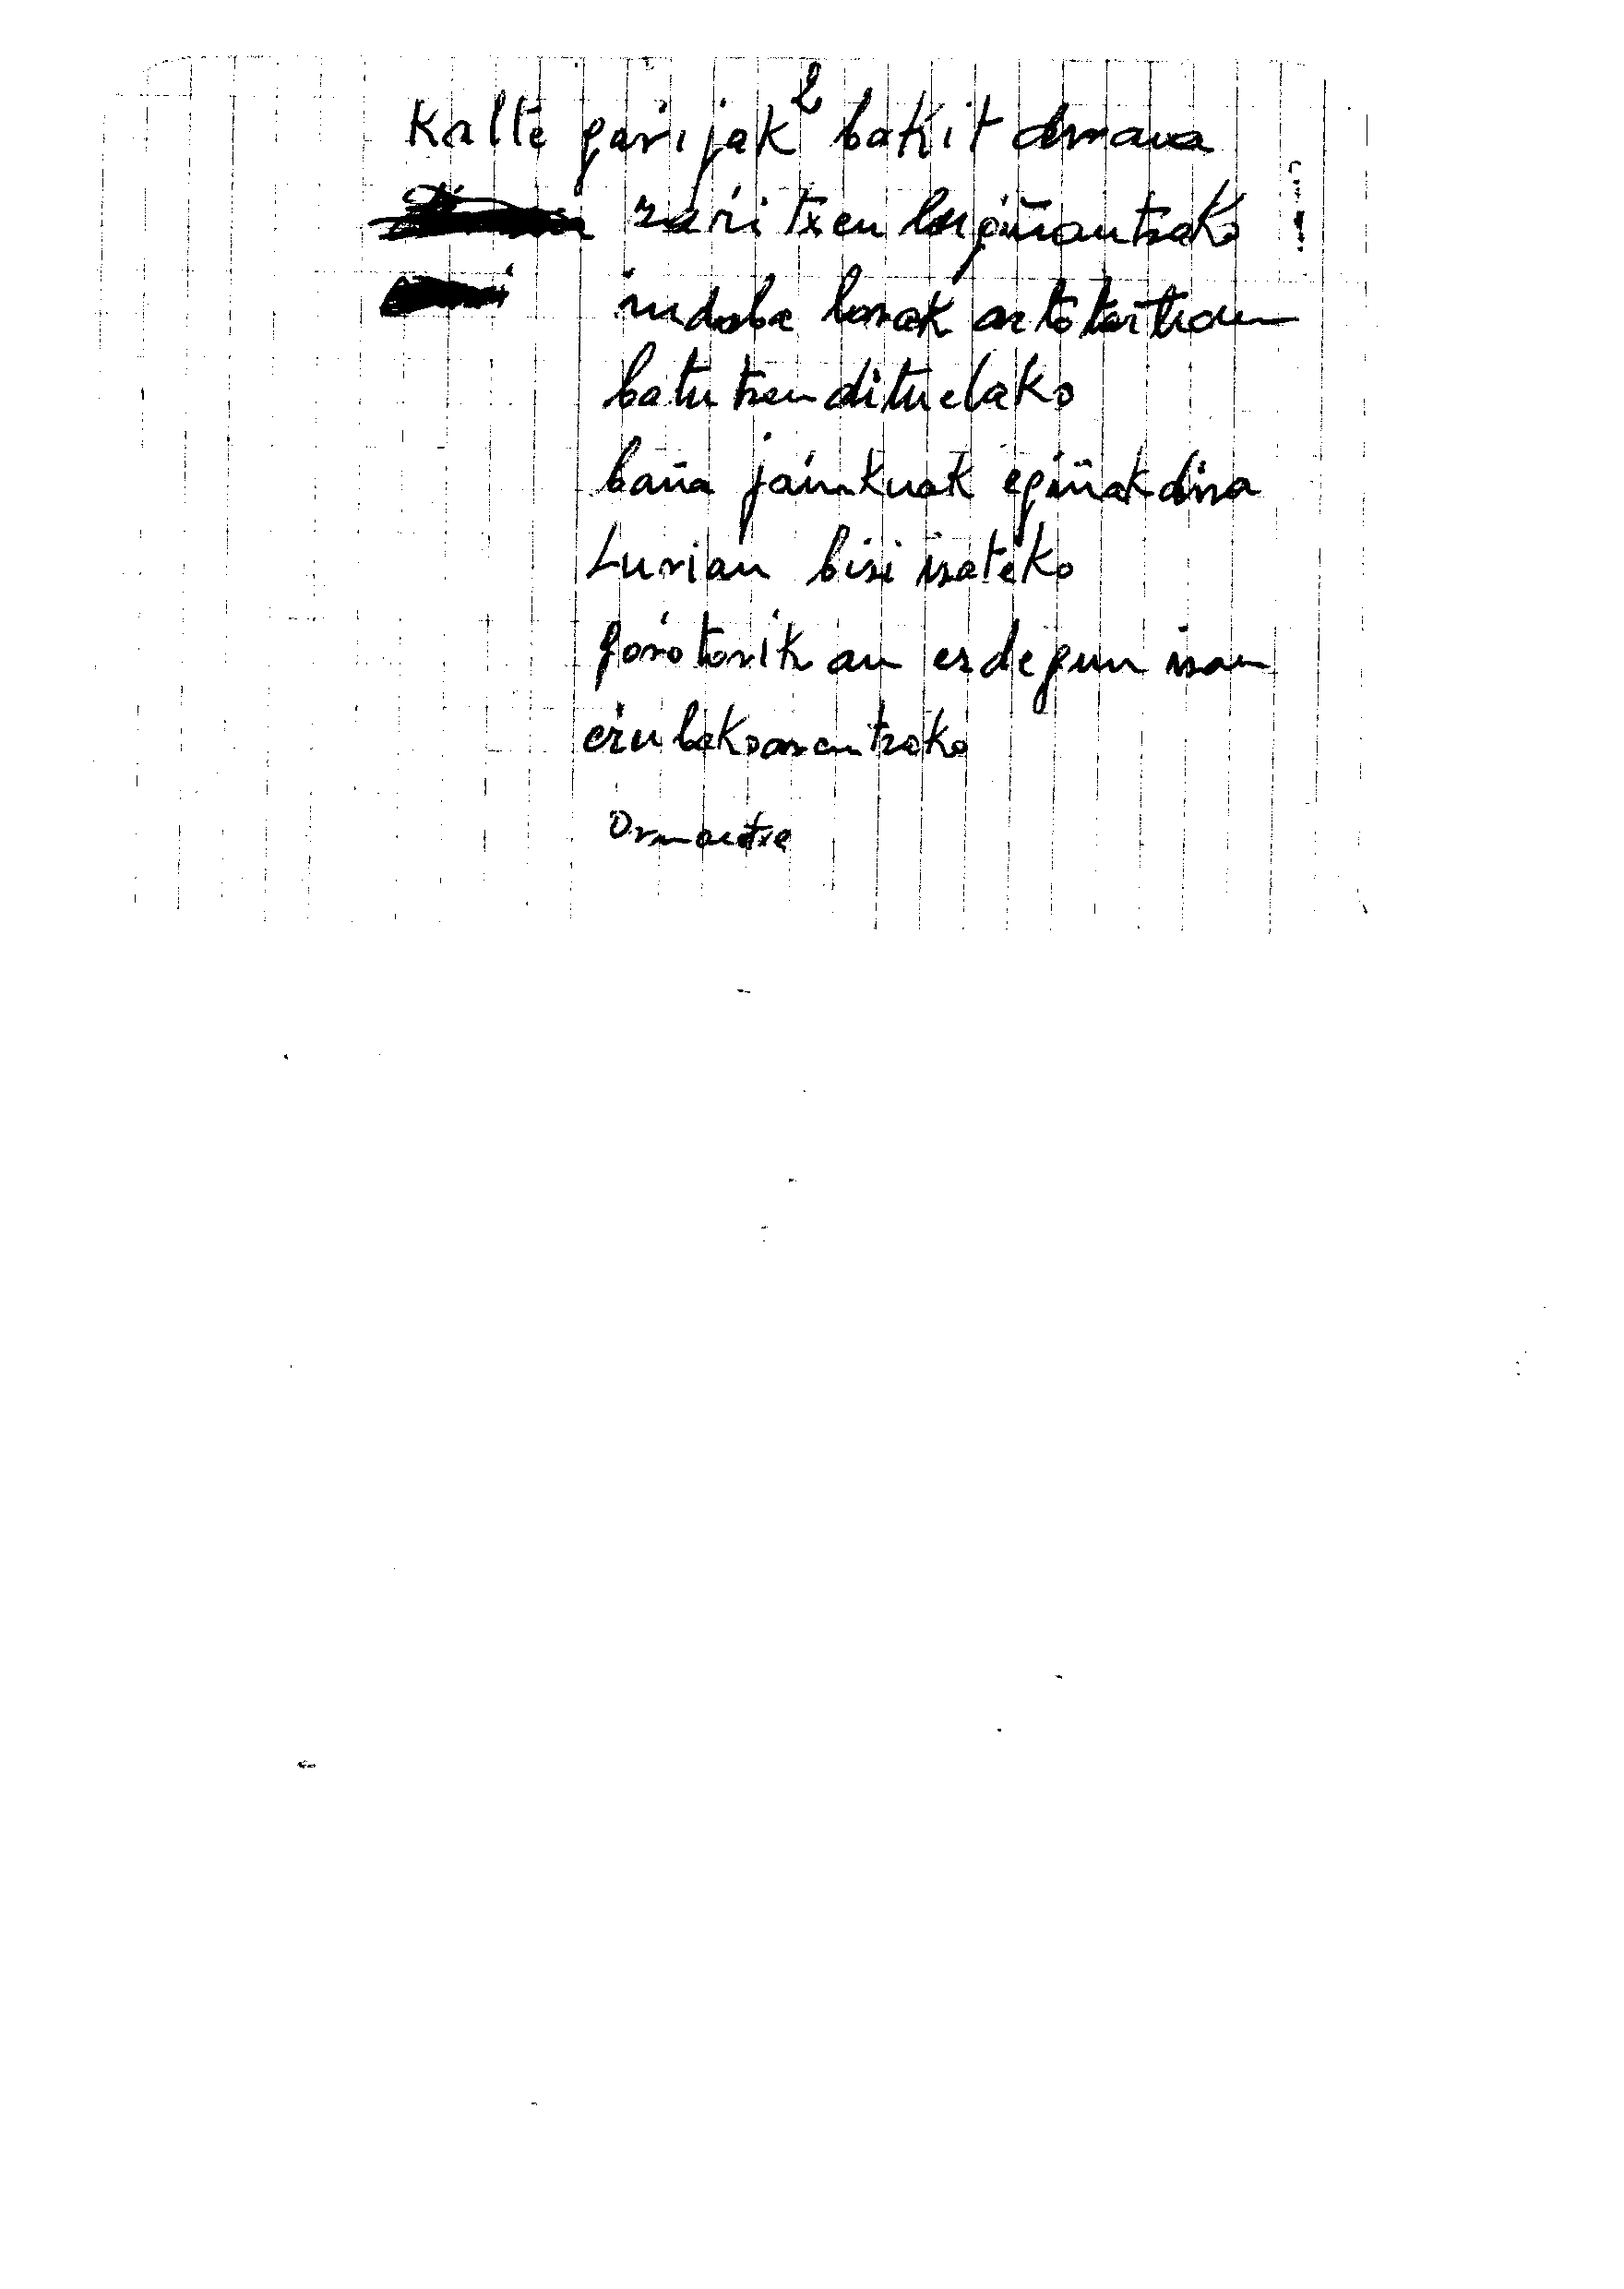 2
Kalte garijak bakit dirana
zaŕitxen baginantzako
indaba lorak arto tartian
batutzen dituelako
baña jainkuak egiñak dira
Lurian bisi isateko
goŕotorik an esdegun isan
eŕu bakoaren tzako
Ormaetxe